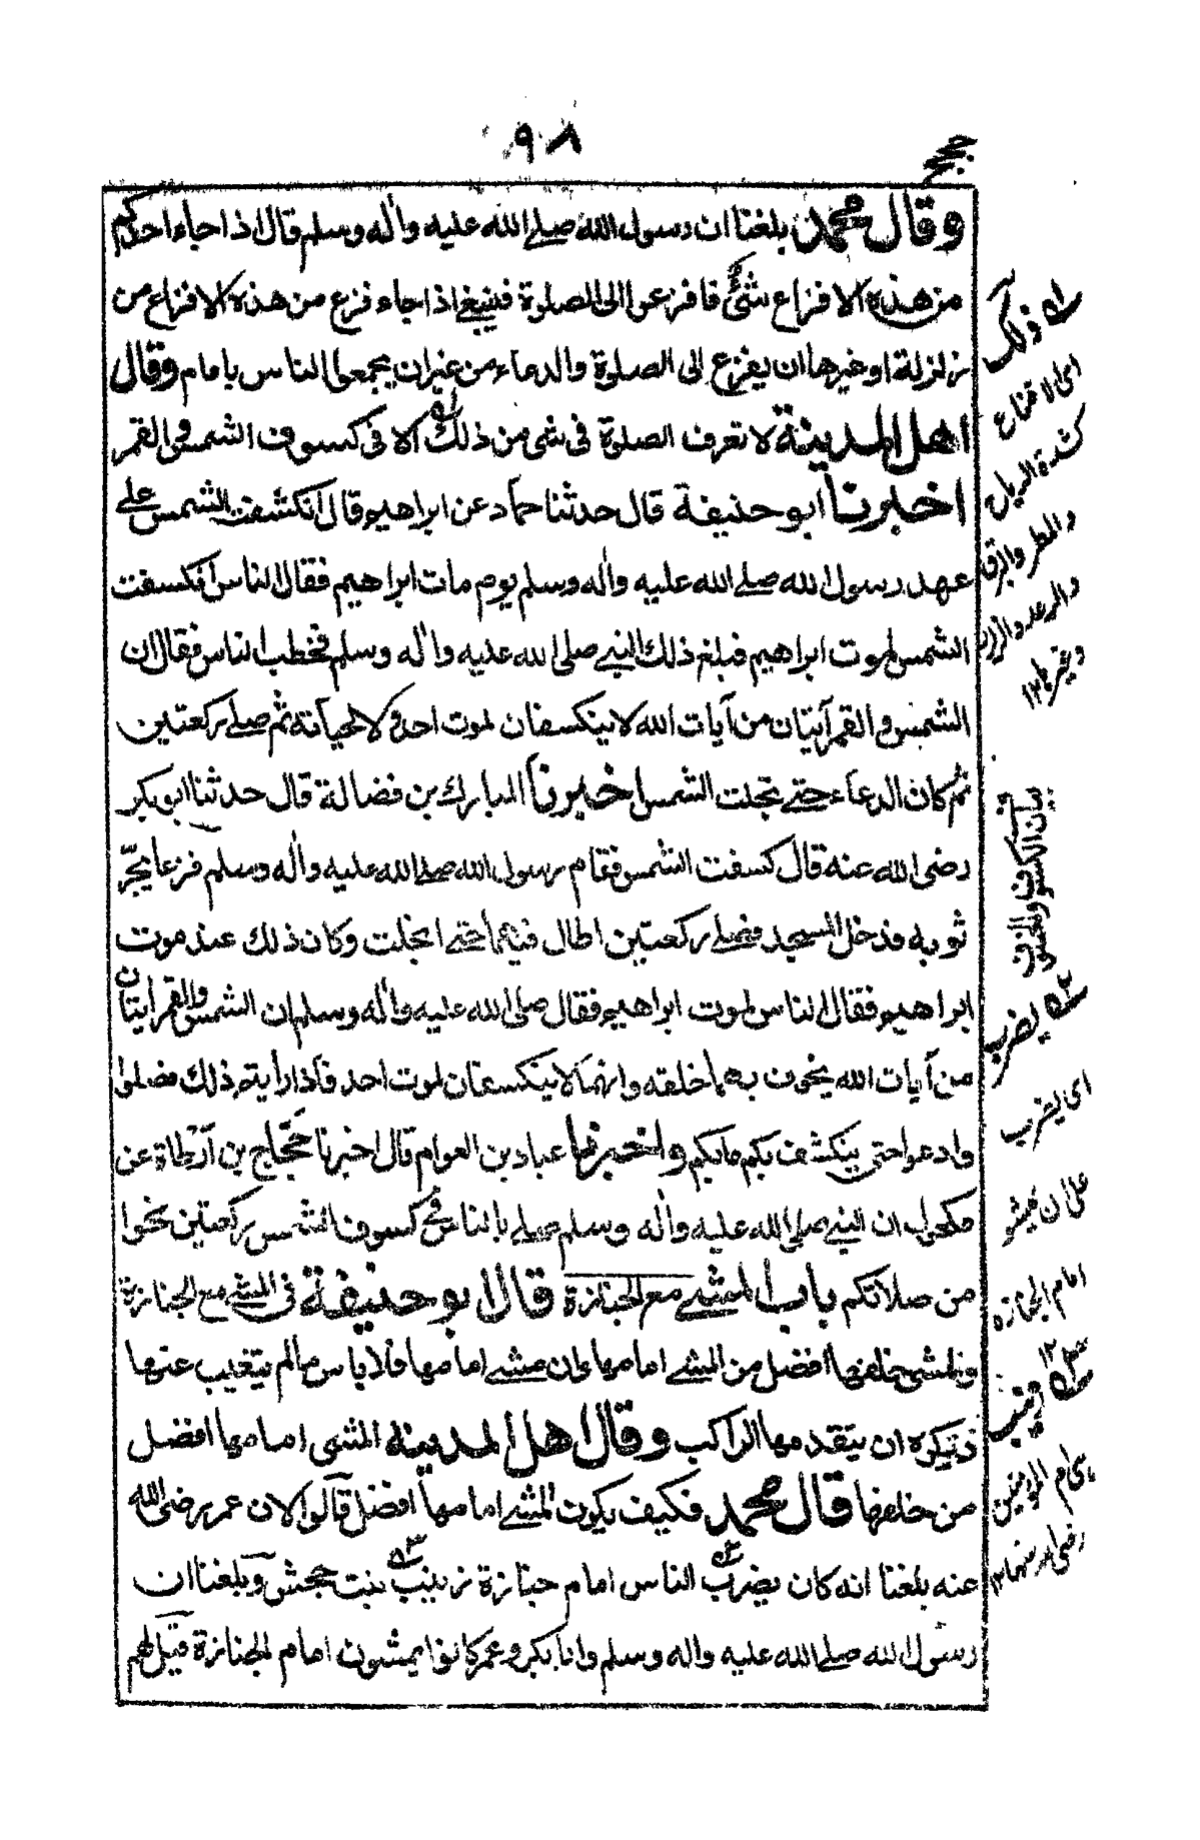 ٩٨
حجج
وقال محمد بلغنا ان رسول الله صلى الله عليه واله وسلم قال اذا جاء احدكم
من هذه الافزاع شئ فافزعوا الى الصلوة فينبغي اذا جاء فزع من هذه الافزاع من
زلزلة او غيرها ان يفزع الى الصلوة والدعاء من غيران يجمعى الناس بامام وقال
اهل المدينة لا تعرف الصلوة فى شى من ذلك الا فى كسوف الشمس والقمر
اخبرنا ابو حنيفة قال حدثنا حماد عن ابراهيم قال انكشفت الشمس على
عهد رسول الله صلى الله عليه واله وسلم يوم مات ابراهيم فقال الناس انكسفت
الشمس لموت ابراهيم فبلغ ذلك النبي صلى الله عليه واله وسلم فخطب الناس فقال ان
الشمس والقمر آيتان من آيات الله لا ينكسفان لموت احد ولا لحياته ثم صلى ركعتين
ثم كان الدعاء حتى تجلت الشمس اخبرنا المبارك بن فضالة قال حدثنا ابن بكر
رضى الله عنه قال كسفت الشمس فقام رسول الله صلى الله عليه واله وسلم فزعا يجر
ثوبه فدخل المسجد فصلى ركعتين اطال فيهما حتى انجلت وكان ذلك عند موت
ابراهيم فقال الناس لموت ابراهيم فقال صلى الله عليه واله وسلم ان الشمس والقمر ايتان
من آيات الله يخوف بهما خلقه وانهما لا ينكسفان لموت احد فاذا رايتم ذلك فصلوا
وادعوا حتى ينكشف بكم ما بكم واخبرنا عباد بن العوام قال اخبرنا حجاج بن ارطاة عن
مكحول ان النبي صلى الله عليه واله وسلم صلى بالناس فى كسوف الشمس ركعتين نحوا
من صلاتكم باب المشى مع الجنازة قال ابو حنيفة فى المشى مع الجنازة
والمشى خلفها افضل من المشى امامها وان مشى امامها فلا باس ما لم يتغيب عنها
ونكره ان يتقدمها الراكب وقال اهل المدينة المشى امامها افضل
من خلفها قال محمد فكيف يكون المشى امامها افضل قالوا لان عمر رضى الله
عنه بلغنا انه كان يضرب الناس امام جنازة زينب بنت جحش وبلغنا ان
رسول الله صلى الله عليه واله وسلم وابا بكر وعمر كانوا يمشون امام الجنازة قيل لهم
ذلك
اى الافزاع
كشدة الرياح
والمطر والبرق
والرعد والزلزلة
وغيرها ١٢
بيان الكسوف والخسوف
يضرب
اى يضرب
على ان يمشو
امام الجنازه
١٢
زينب
ام المؤمنين
رضى الله عنها ١٢